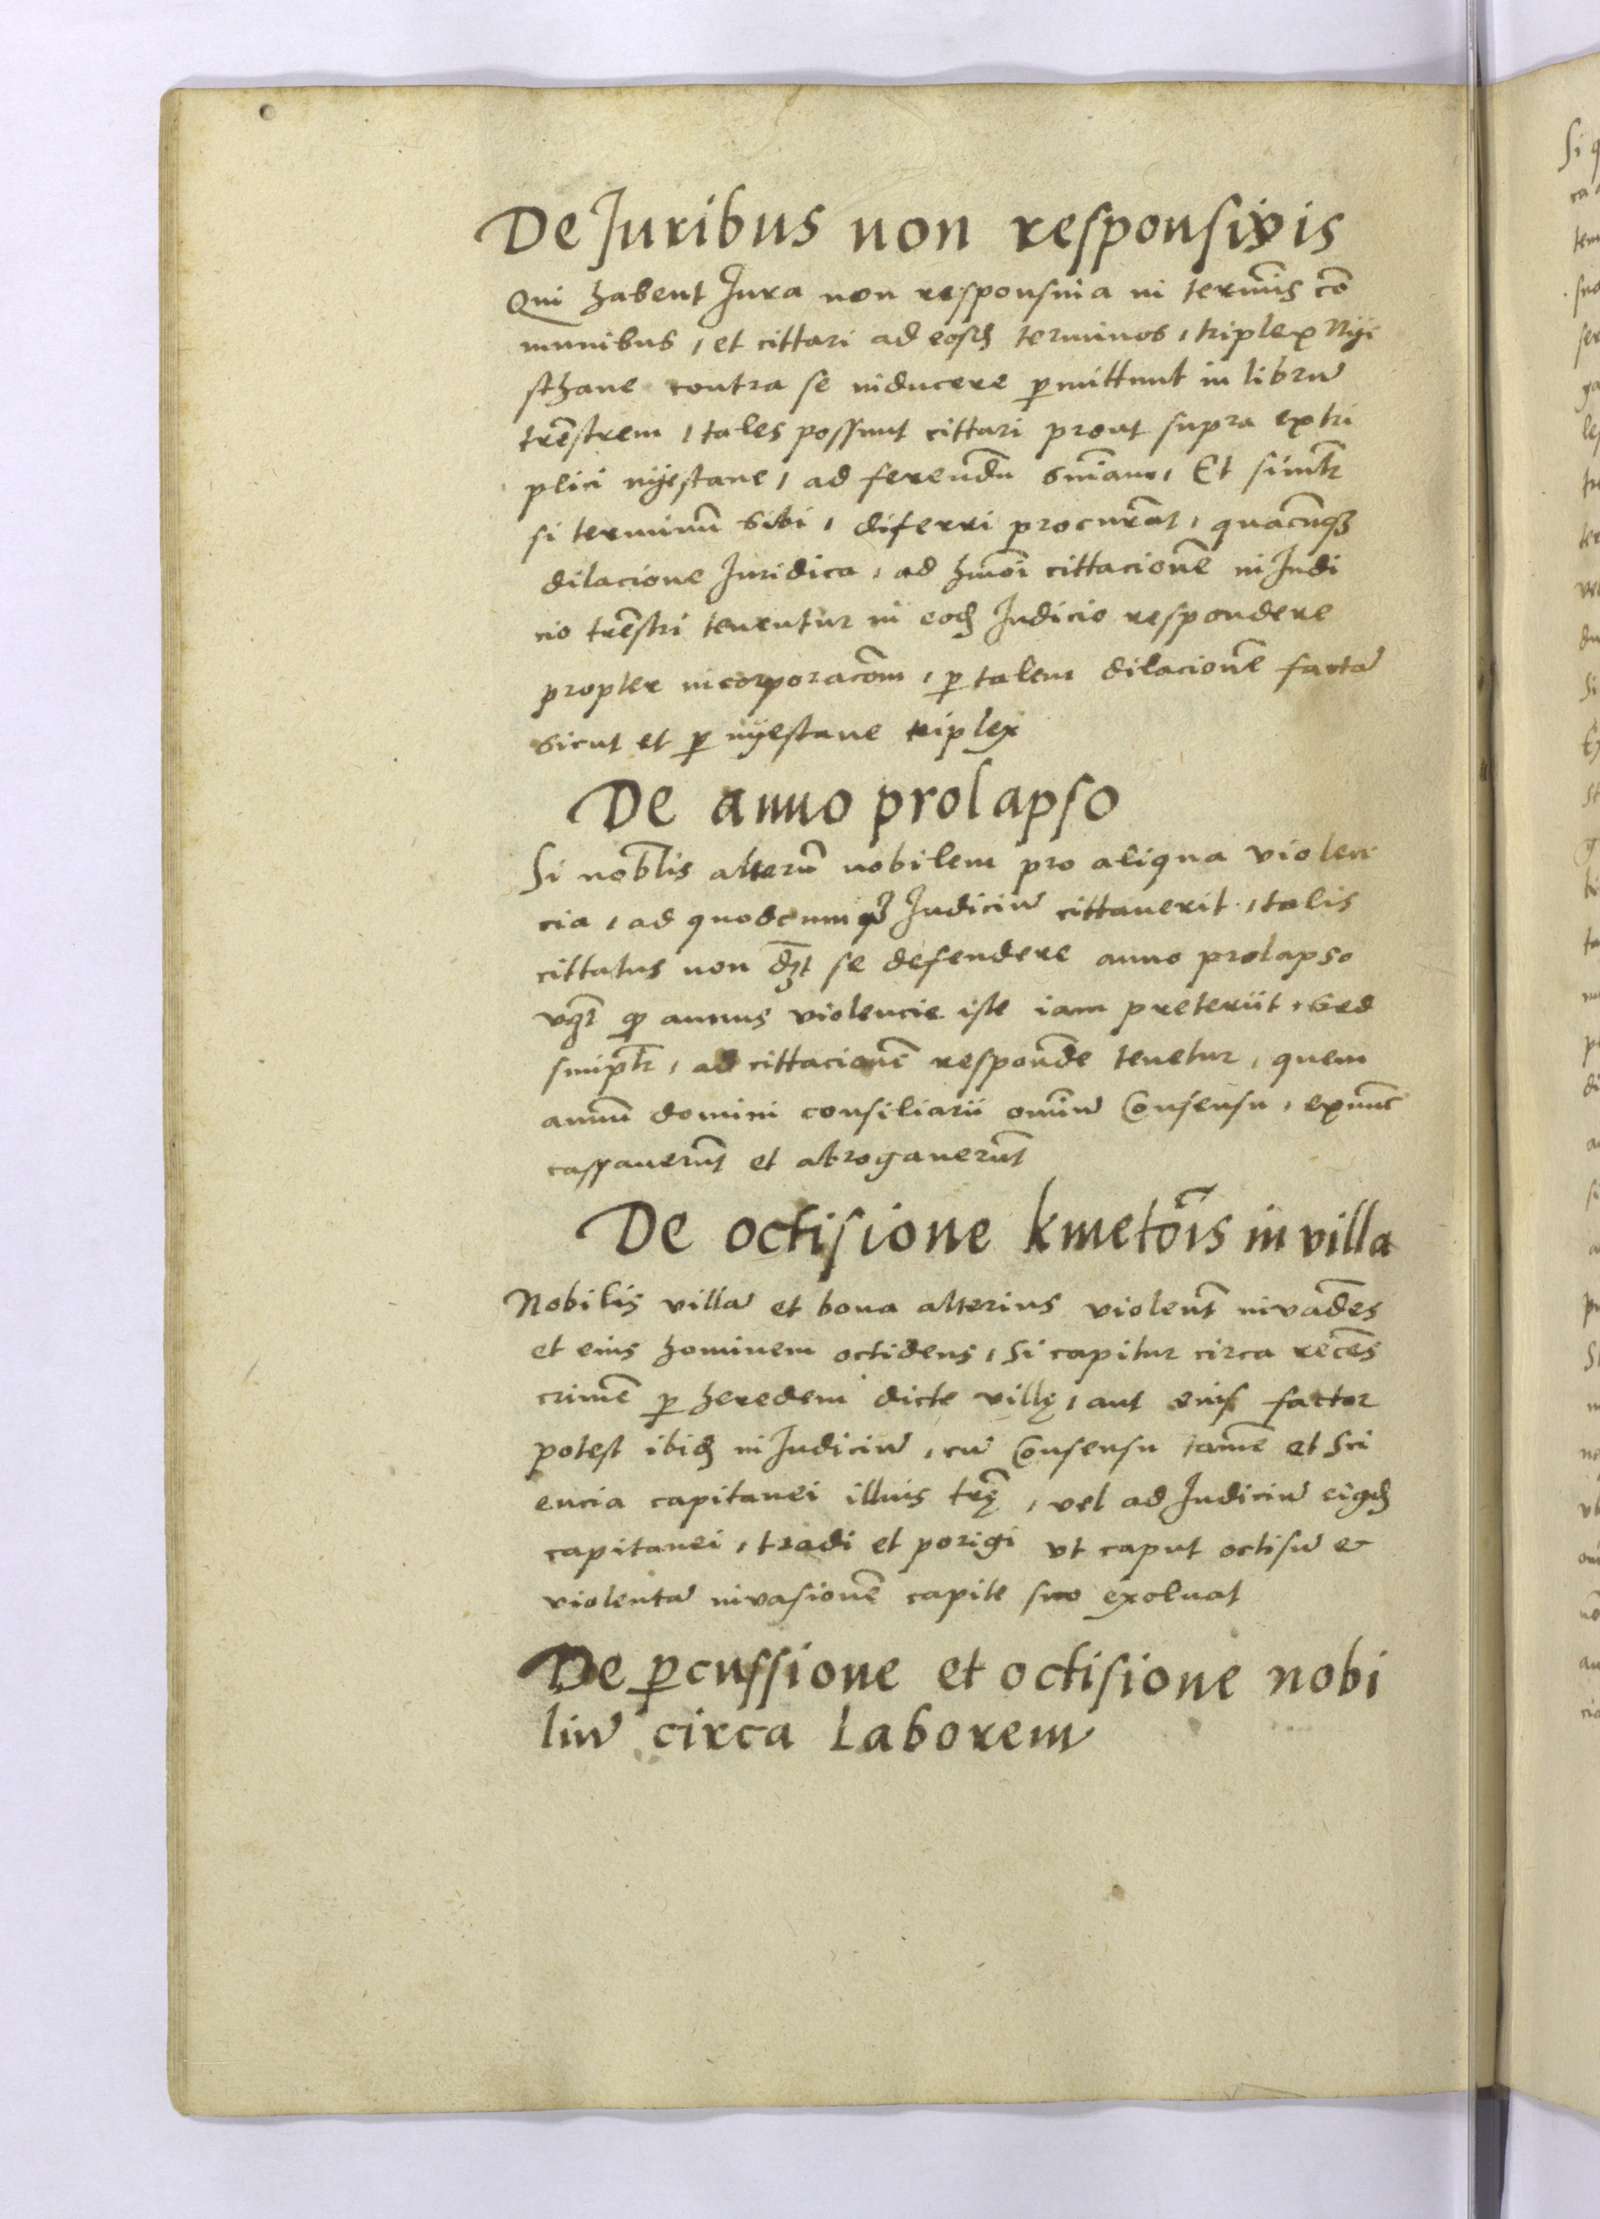 De Juribus non responsivis
Qui habent Jura non responsiua in termĩs cõ
munibus, et cittari ad eosdẽ terminos, triplex Nije
sthane contra se inducere ꝑmittunt in librũ
trẽstrem, tales possunt cittari prout supra ex tri
plici nijestane, ad ferendũ sniam, Et simltr
si terminũ sibi, diferri procurãt, quacũqꝫ
dilacione Juridica, ad hmoi cittacionẽ in Judi
cio trẽstri tenentur in eodẽ Judicio respondere
propter incorporacõm, ꝑ talem dilacionẽ factã
sicut et ꝑ nijestane triplex
De anno prolapso
Si nobłis alterũ nobilem pro aliqua violen
cia, ad quodcumqꝫ Judiciũ cittauerit, talis
cittatus non dꝫt se defendere anno prolapso
vꝫt ꝙ annus violencie iste iam preteriit, Sed
simpłr, ad cittacionẽ respondẽ tenetur, quem
annũ domini consiliarii omniũ Consensu, exnũc
cassauerũt et abrogauerũt
De octisione kmetõis in villa
Nobilis villã et bona alterius violent̃ invadẽs
et eius hominem octidens, Si capitur circa recẽs
crimẽ ꝑ heredem dicte villę, aut eius factor
potest ibidẽ in Judiciũ, cũ Consensu tamẽ et Sci
encia capitanei illius trę, vel ad Judiciũ eiꝰdẽ
capitanei, tradi et porigi vt caput octisũ &
violentã invasionẽ capite suo exoluat
De ꝑcussione et octisione nobi
liũ circa Laborem